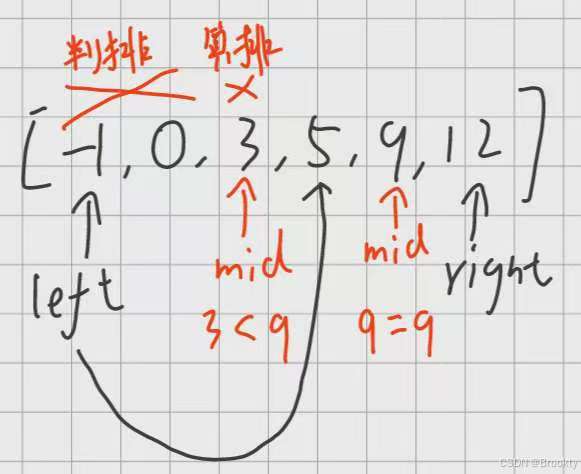 判排 算排
[-1, 0, 3, 5, 9, 12]
left mid mid right
3<9 9=9
CSDN @Brookty